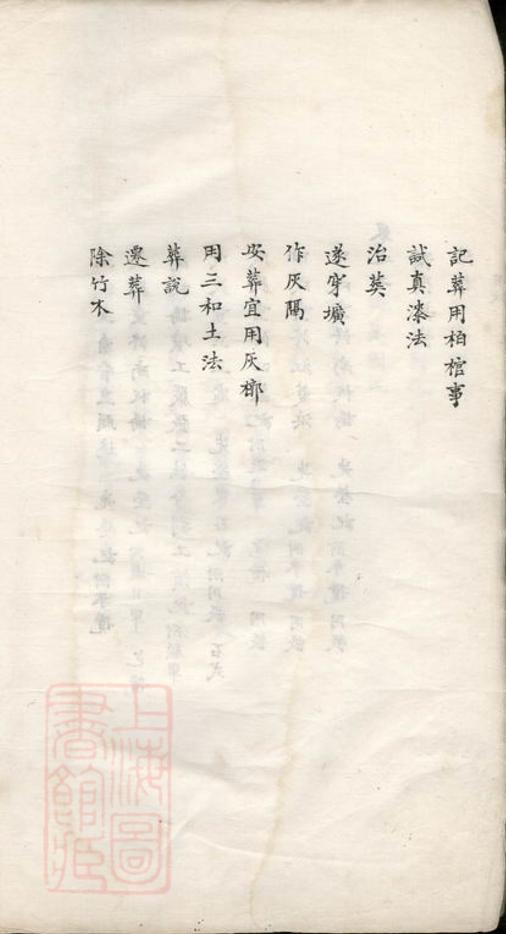 記葬用柏棺事
試真漆法
治葬
遂穿壙
作灰隔
安葬宜用灰槨
用三和土法
葬說
遷葬
除竹木
上海圖
書館藏